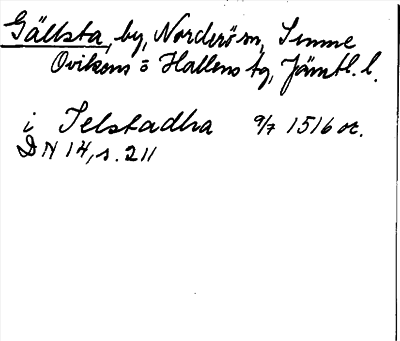 Gällsta, by, Norderö sn, Sunne
Ovikens o Hallens tg, Jämtl. l.
i Selstadha 9/7 1516 or.
DN 14, s. 211